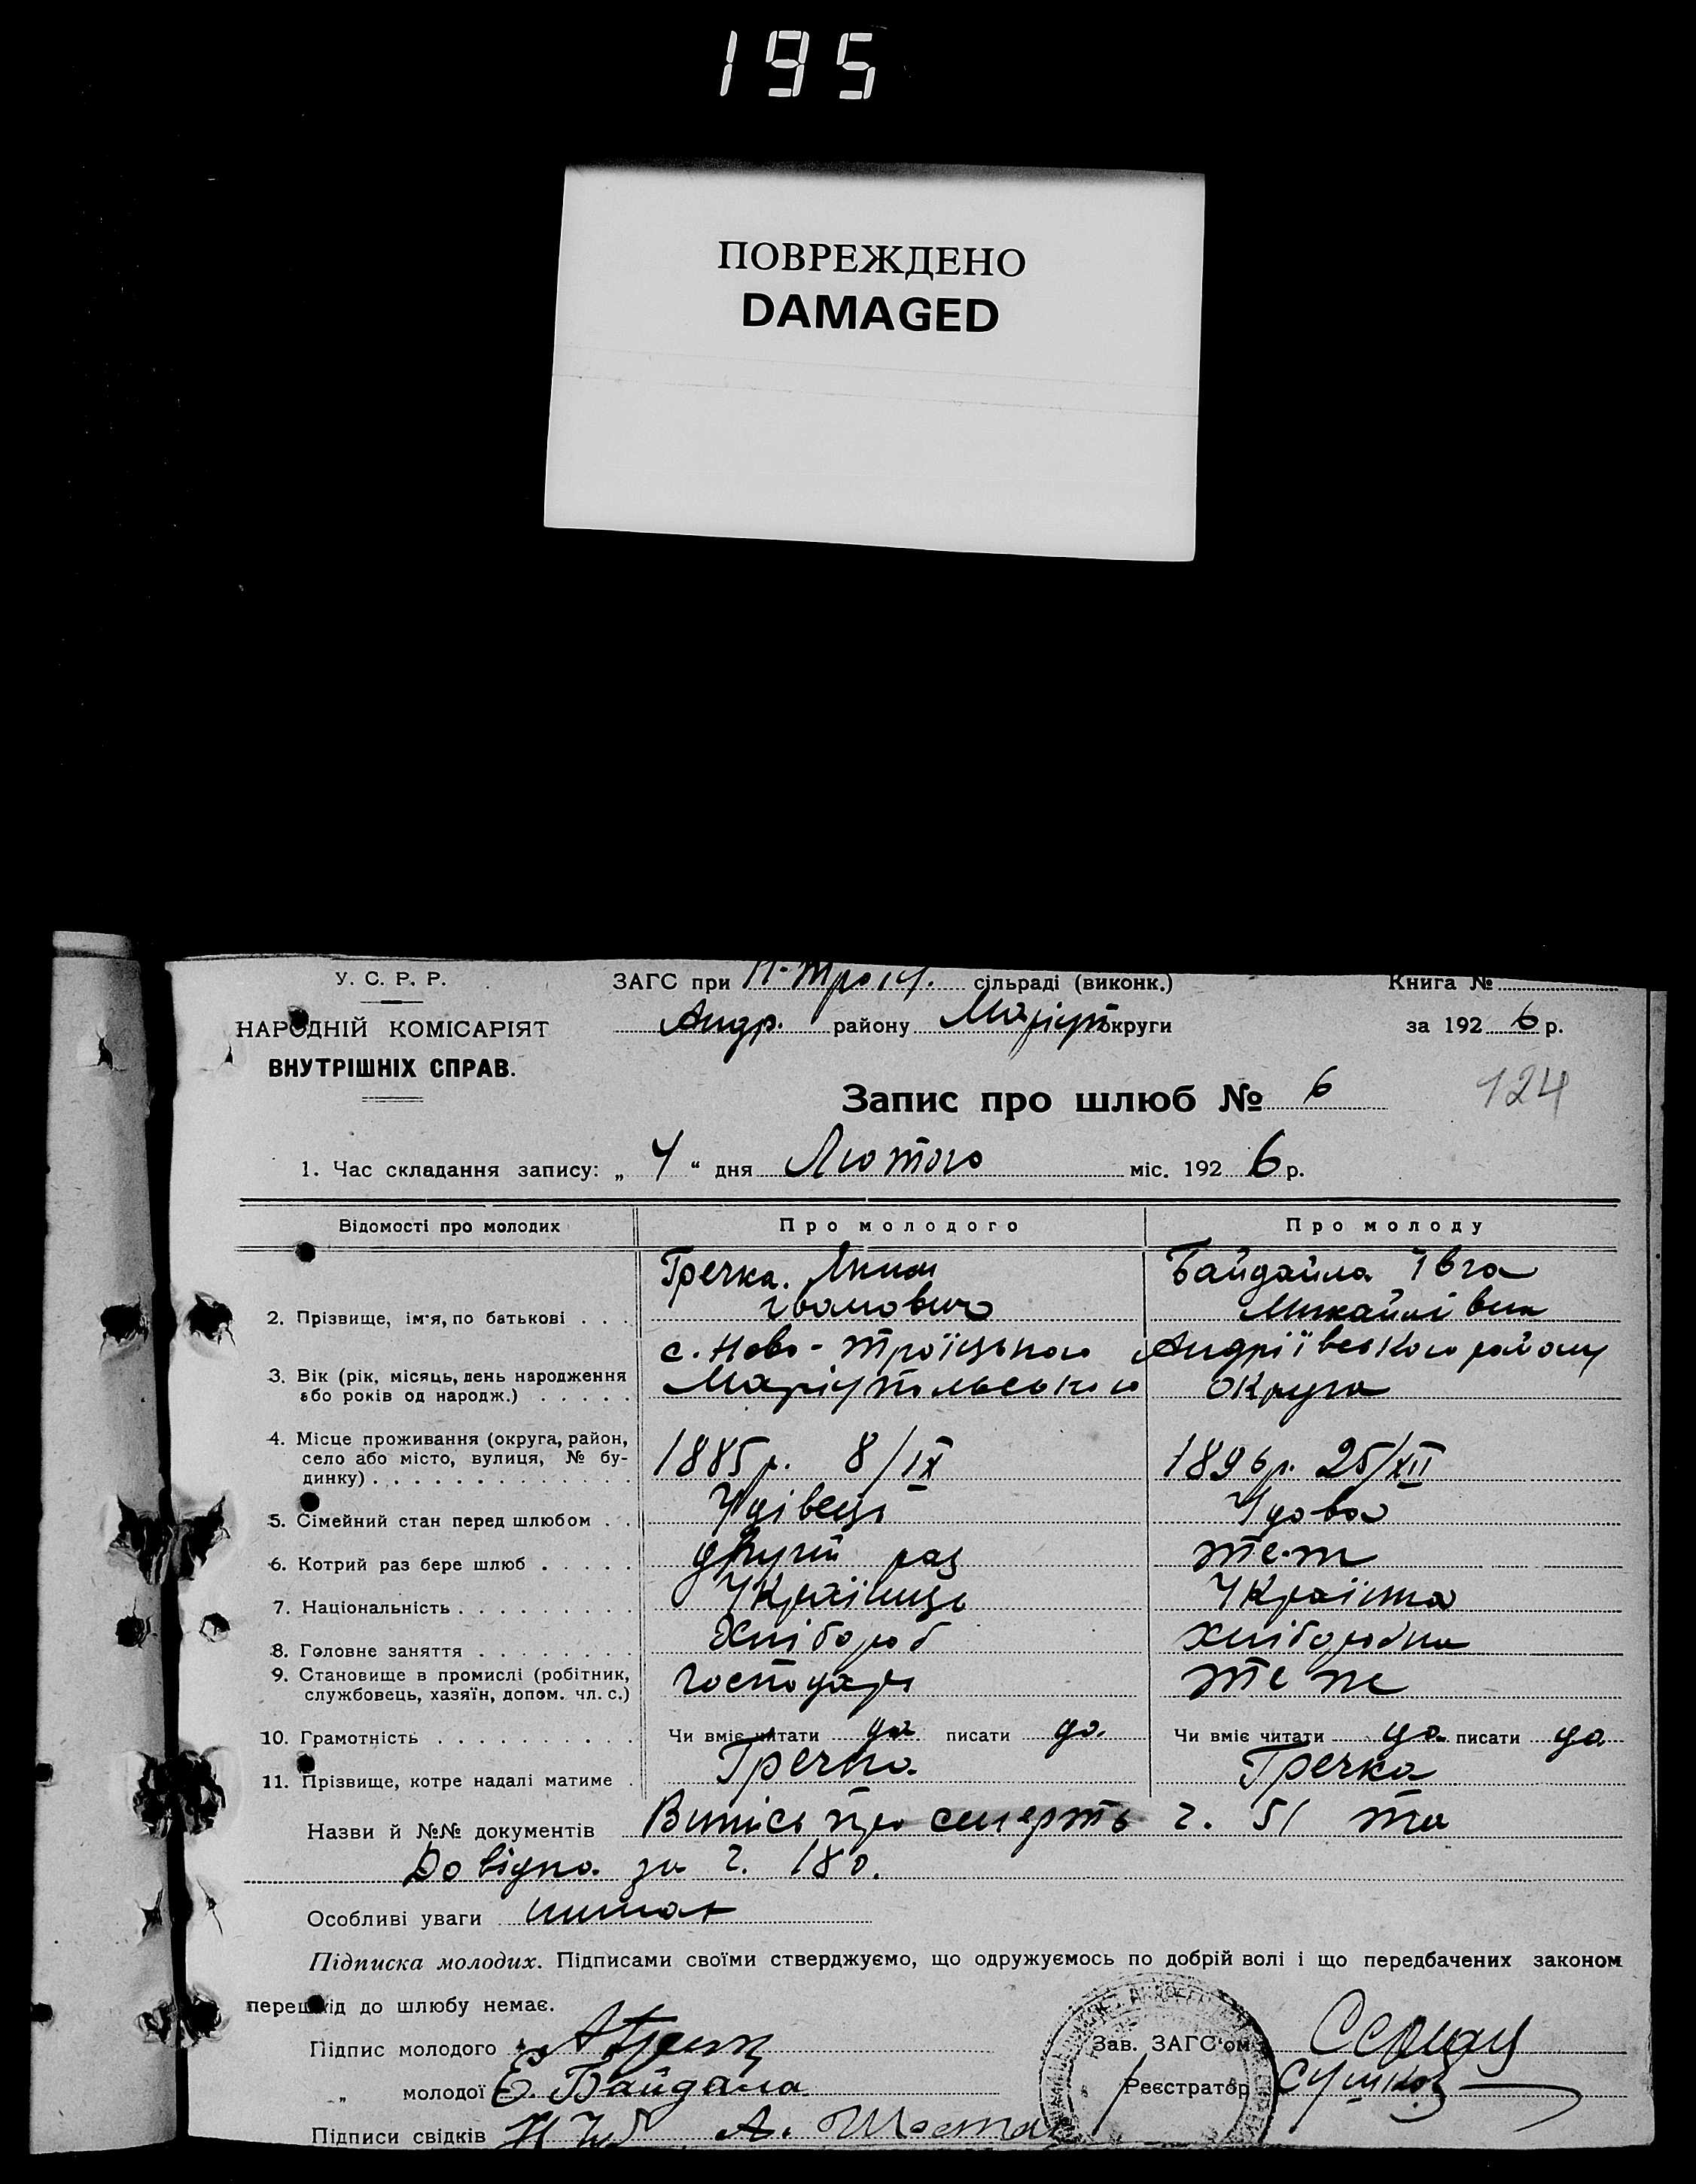 195
ПОВРЕЖДЕНО
DAMAGED
У. С. Р. Р.
ЗАГС при Н-Троїц. сільраді (виконк.)
Книга №
НАРОДНІЙ КОМІСАРІЯТ
Андр. району Маріуп округи
за 1926 р.
ВНУТРІШНІХ СПРАВ.
Запис про шлюб № 6
124
1. Час складання запису: „ 4 “ дня Лютого міс. 1926 р.
Відомості про молодих
Про молодого
Про молоду
2. Прізвище, ім'я, по батькові . . .
Гречка. Яким
Іванович
Байдала Івга
Михайлівна
3. Вік (рік, місяць, день народження
або років од народж.) . . . . .
с. Ново-Троїцького Андріївського району
Маріупольського Округа
4. Місце проживання (округа, район,
село або місто, вулиця, № бу-
динку) . . . . . . . . . . . .
1885 р. 8/IX
1896 р. 25/XII
5. Сімейний стан перед шлюбом . .
Удівець
Удова
6. Котрий раз бере шлюб . . . . .
другий раз
теж
7. Національність . . . . . . . . .
Українець
Українка
8. Головне заняття . . . . . . . .
Хлібороб
хліборобка
9. Становище в промислі (робітник,
службовець, хазяїн, допом. чл. с.)
господарь
теж
10. Грамотність . . . . . . . . . .
Чи вміє читати да писати да.
Чи вміє читати да писати да
11. Прізвище, котре надалі матиме .
Гречка
Гречка
Назви й №№ документів Випись про смерть ч. 51 та
Довідка за ч. 180.
Особливі уваги
Підписка молодих. Підписами своїми стверджуємо, що одружуємось по добрій волі і що передбачених законом
перешкід до шлюбу немає.
Підпис молодого
Зав. ЗАГС'ом
„ молодої Е. Байдала
Реєстратор
Підписи свідків А. Шостак